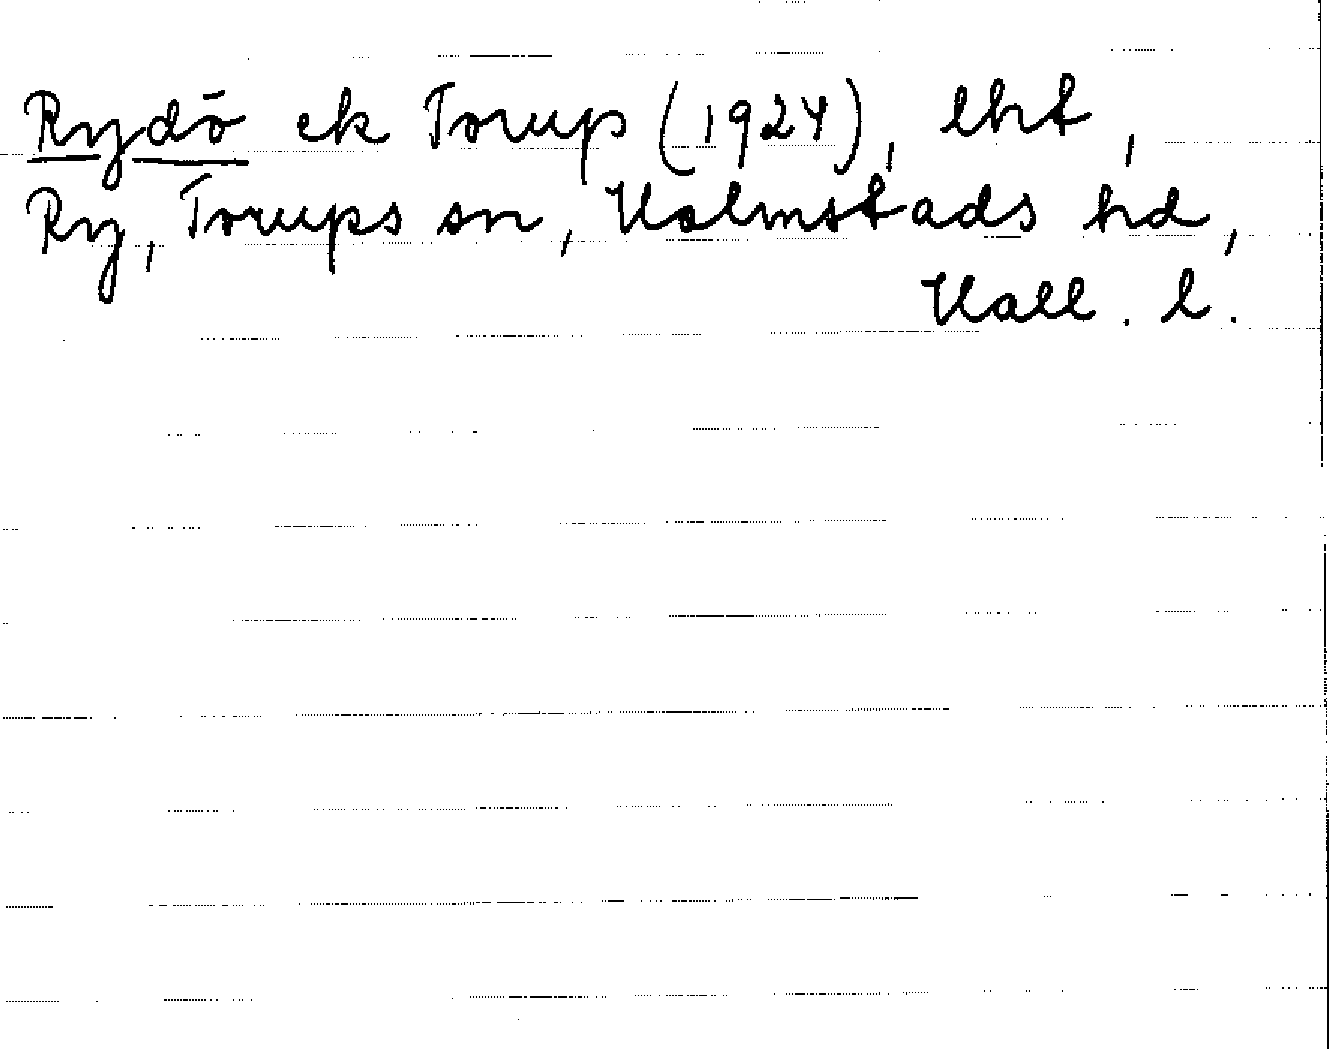 Rydö ek Torup (1924), lht,
Ry, Torups sn, Halmstads hd,
Hall. l.